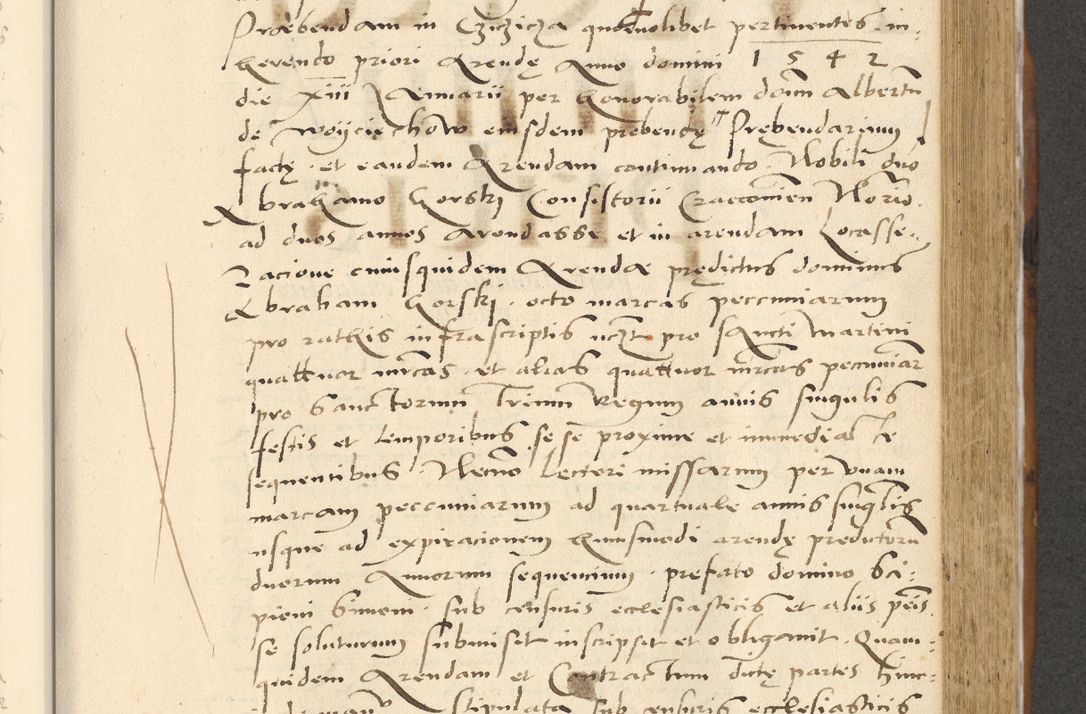 Præbendam in Czchicza quomodolibet pertinentes in:
herendo priori Arendę Anno domini 1 5 4 2
die xiii Januarii per honorabilem dom̄ Albertū
de Woyciechow eiusdem prebendę Prębendarium
factę et eandem Arendam continuando Nobili dno
Abrahamo Gorski Consistorii Craccouien Norio
ad duos annos Arendasse et in arendam Locasse
Racione cuiusquidem Arendæ prędictus dominus
Abraham Gorski octo marcas peccuniarum
pro rathis infrascriptis vczt pro sancti Martini
quattuor mrcas et alias quattuor mrcas pecuniar
pro Sanctorum Trium Regum annis singulis
festis et temporibus se se proxime et immediate
sequentibus Necno Lectori missarum per vnam
marcam peccuniarum ad quartuale annis singlis
usque ad expiracionem huiusmodi arendę predictorū
duorum Annorum sequencium prefato domino Sci:
pioni Simoni sub censuris ecclesiasticis et aliis peīs
se soluturum submisit inscripsit et obligauit Quam:
quidem Arendam et Contractum dictę partes hinc:
stipulata sub censuris ecclesiasticis